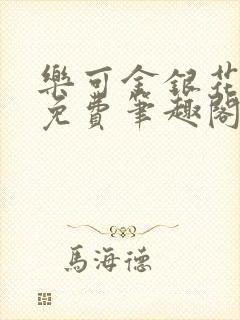 樂可金銀花
免費筆趣閣
馬海德